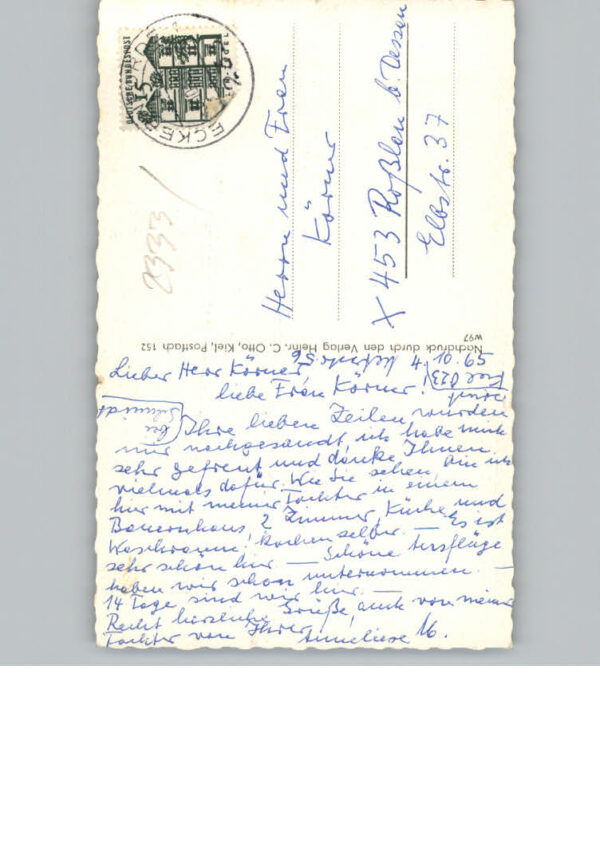 DEUTSCHE BUNDESPOST
15
ECKER
Herrn und Frau
Körner
X 453 Roßlau b. Dessau
Elbstr. 37
2333
Nachdruck durch den Verlag Heinr. C. Otto, Kiel, Postfach 152
W97
4. 10. 65
Lieber Herr Körner
liebe Frau Körner!
bei Schmidt
Ihre lieben Zeilen wurden
mir nachgesandt, ich habe mich
sehr gefreut und danke Ihnen
vielmals dafür. Wie Sie sehen, bin ich
hier mit meiner Tochter in einem
Bauernhaus, 2 Zimmer, Küche und
Waschraum, kochen selber. — Es ist
sehr schön hier — Schöne Ausflüge
haben wir schon unternommen. —
14 Tage sind wir hier. —
Recht herzliche Grüße, auch von meiner
Tochter von Ihrer Anneliese M.